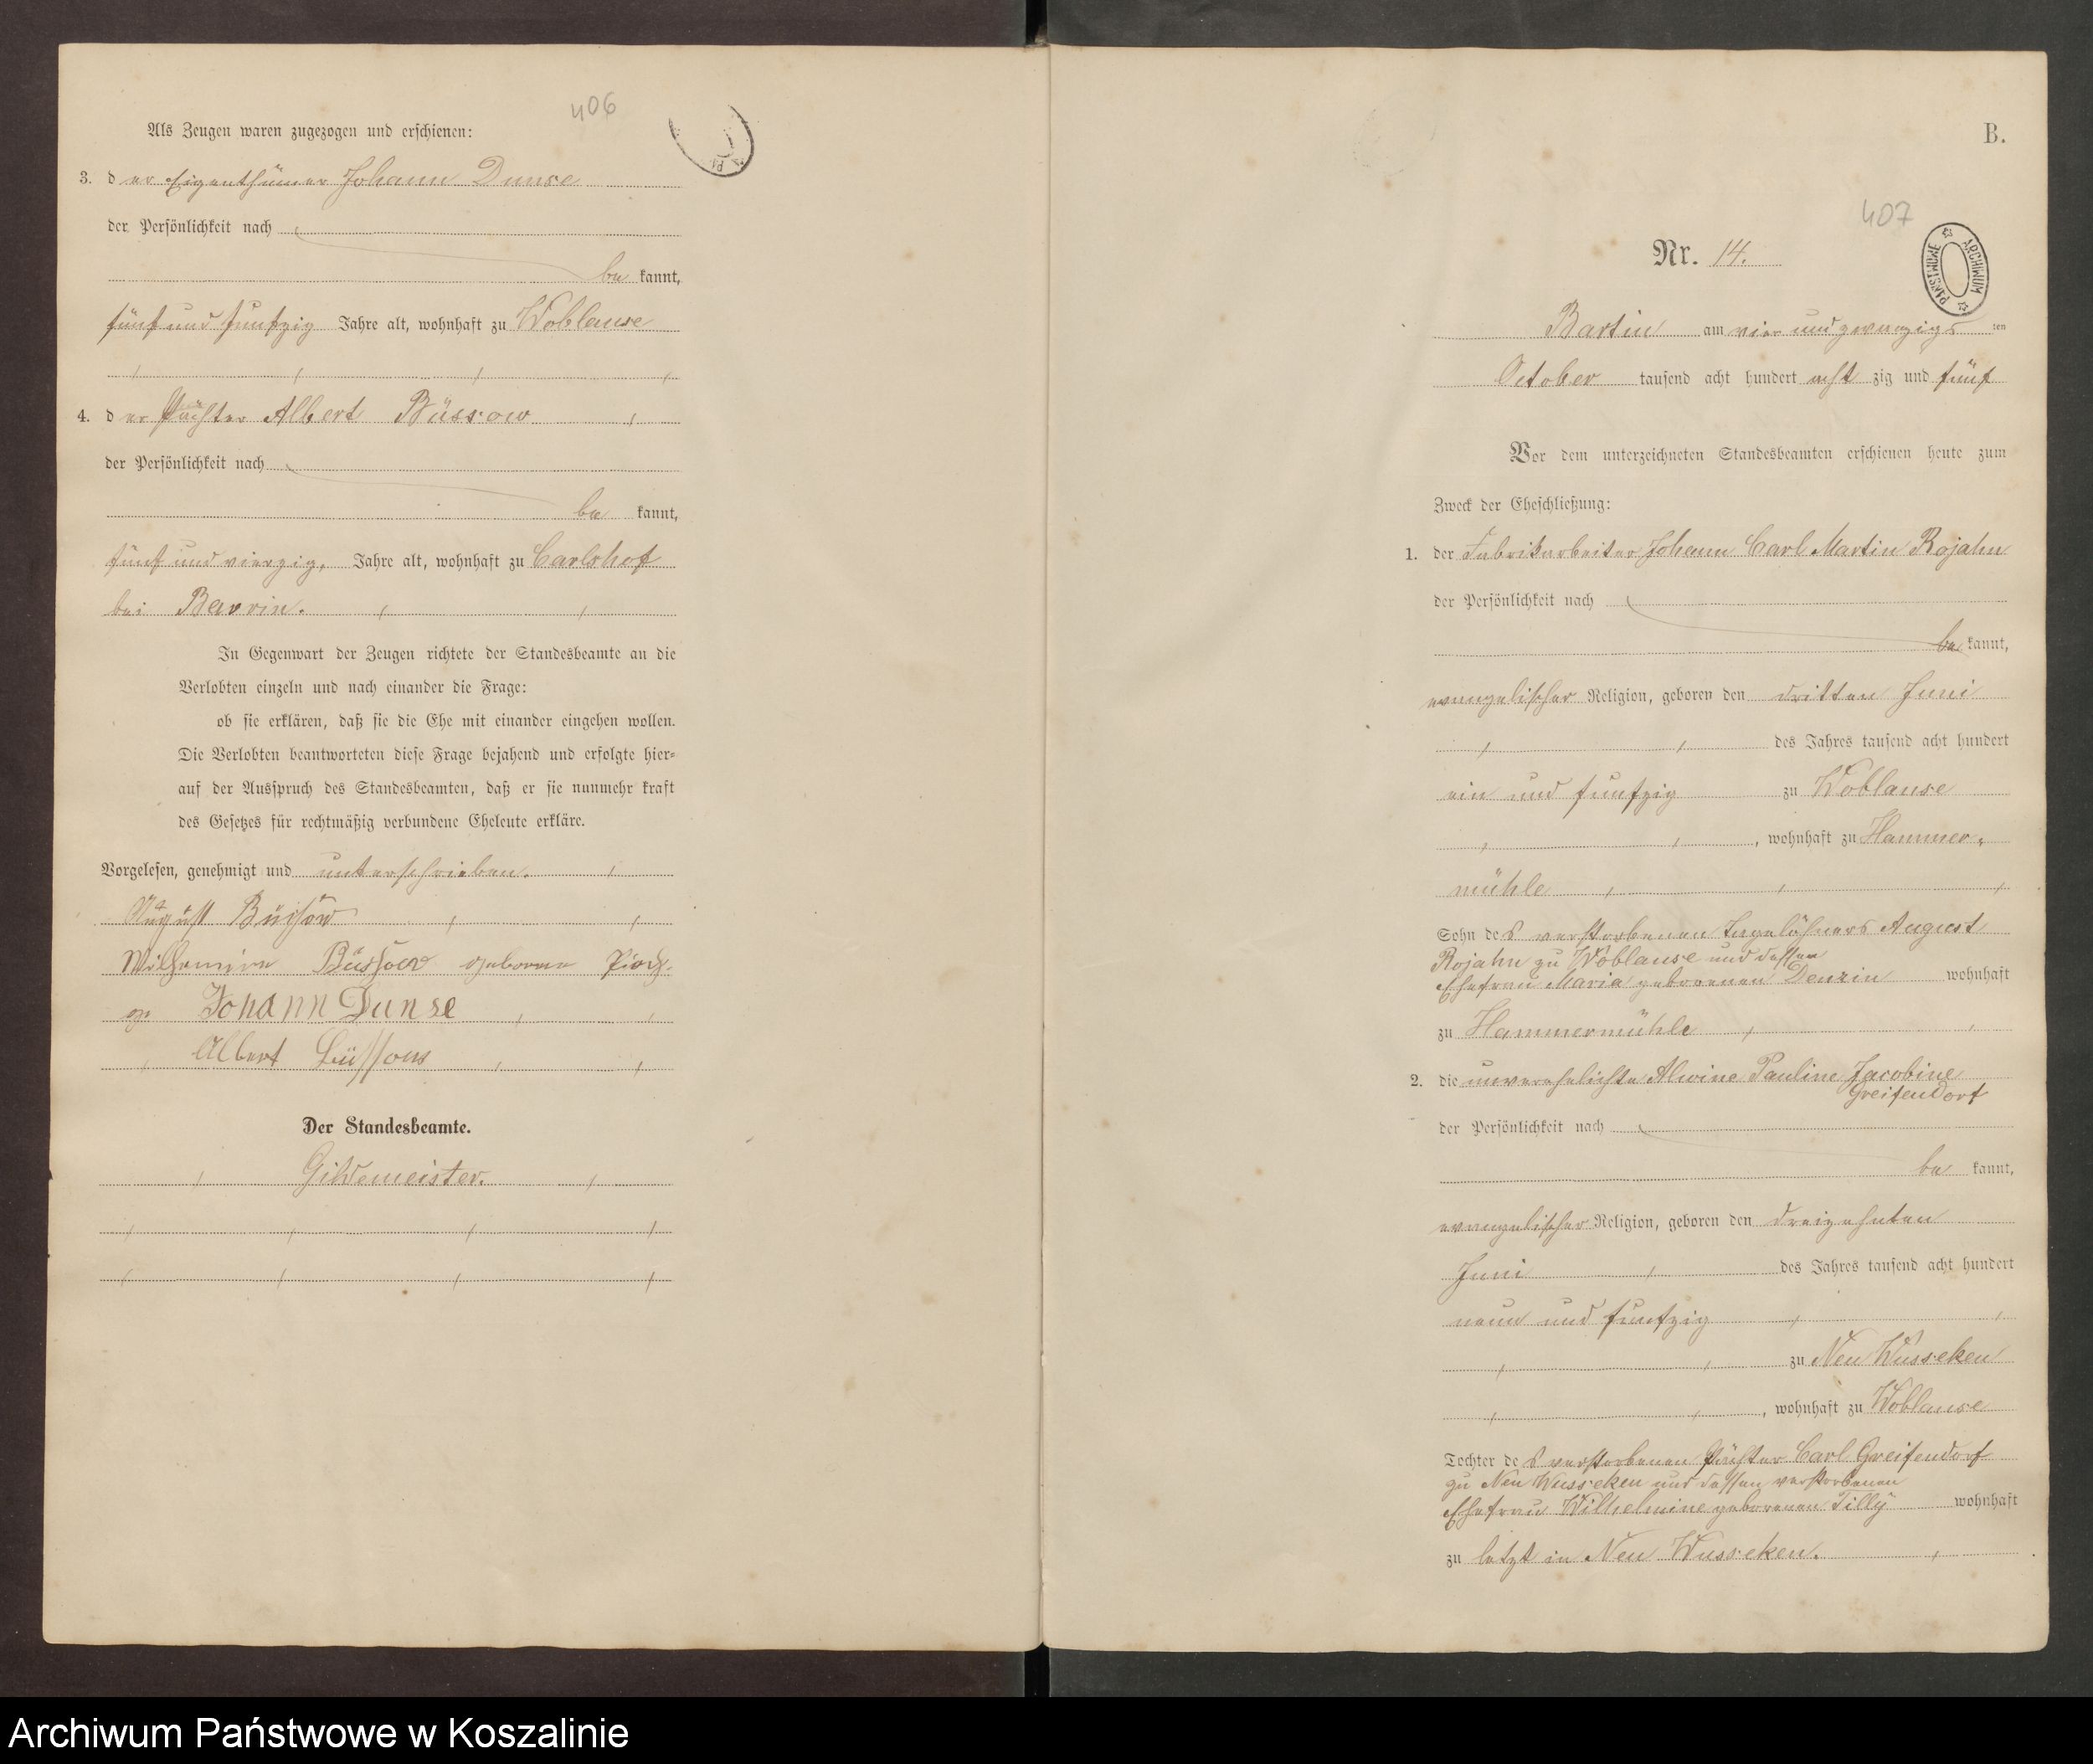 406
Als Zeugen waren zugezogen und erschienen:
3. der Eigenthümer Johann Dunse
der Persönlichkeit nach
be kannt,
fünf und funfzig Jahre alt, wohnhaft zu Woblanse
4. der Pächter Albert Büssow
der Persönlichkeit nach
be kannt,
fünf und vierzig, Jahre alt, wohnhaft zu Carlshof
bei Barvin.
In Gegenwart der Zeugen richtete der Standesbeamte an die
Verlobten einzeln und nach einander die Frage:
ob sie erklären, daß sie die Ehe mit einander eingehen wollen.
Die Verlobten beantworteten diese Frage bejahend und erfolgte hier=
auf der Ausspruch des Standesbeamten, daß er sie nunmehr kraft
des Gesetzes für rechtmäßig verbundene Eheleute erkläre.
Vorgelesen, genehmigt und unterschrieben.
August Büssow
Wilhemine Büssow geborene
Johann Dunse
Albert Büssow
Der Standesbeamte.
Gildemeister.
B.
407
Nr. 14.
ARCHIWUM PAŃSTWOWE
Bartin am vier und zwanzigsten
October tausend acht hundert acht zig und fünf
Vor dem unterzeichneten Standesbeamten erschienen heute zum
Zweck der Eheschließung:
1. der Fabrikarbeiter Johann Carl Martin Rojahn
der Persönlichkeit nach
be kannt,
evangelischer Religion, geboren den dritten Juni
des Jahres tausend acht hundert
ein und funfzig zu Woblanse
, wohnhaft zu Hammer-
mühle
Sohn des verstorbenen Tagelöhners August
Rojahn zu Woblanse und dessen
Ehefrau Maria geborenen Denzin wohnhaft
zu Hammermühle
2. die unverehelichte Alwine Pauline Jacobine
Greifendorf
der Persönlichkeit nach
be kannt,
evangelischer Religion, geboren den dreizehnten
Juni des Jahres tausend acht hundert
neun und funfzig
zu Neu Wusseken
, wohnhaft zu Woblanse
Tochter des verstorbenen Pächter Carl Greifendorf
zu Neu Wusseken und dessen verstorbenen
Ehefrau Wilhelmine geborenen Tilly wohnhaft
zu letzt in Neu Wusseken.
Archiwum Państwowe w Koszalinie